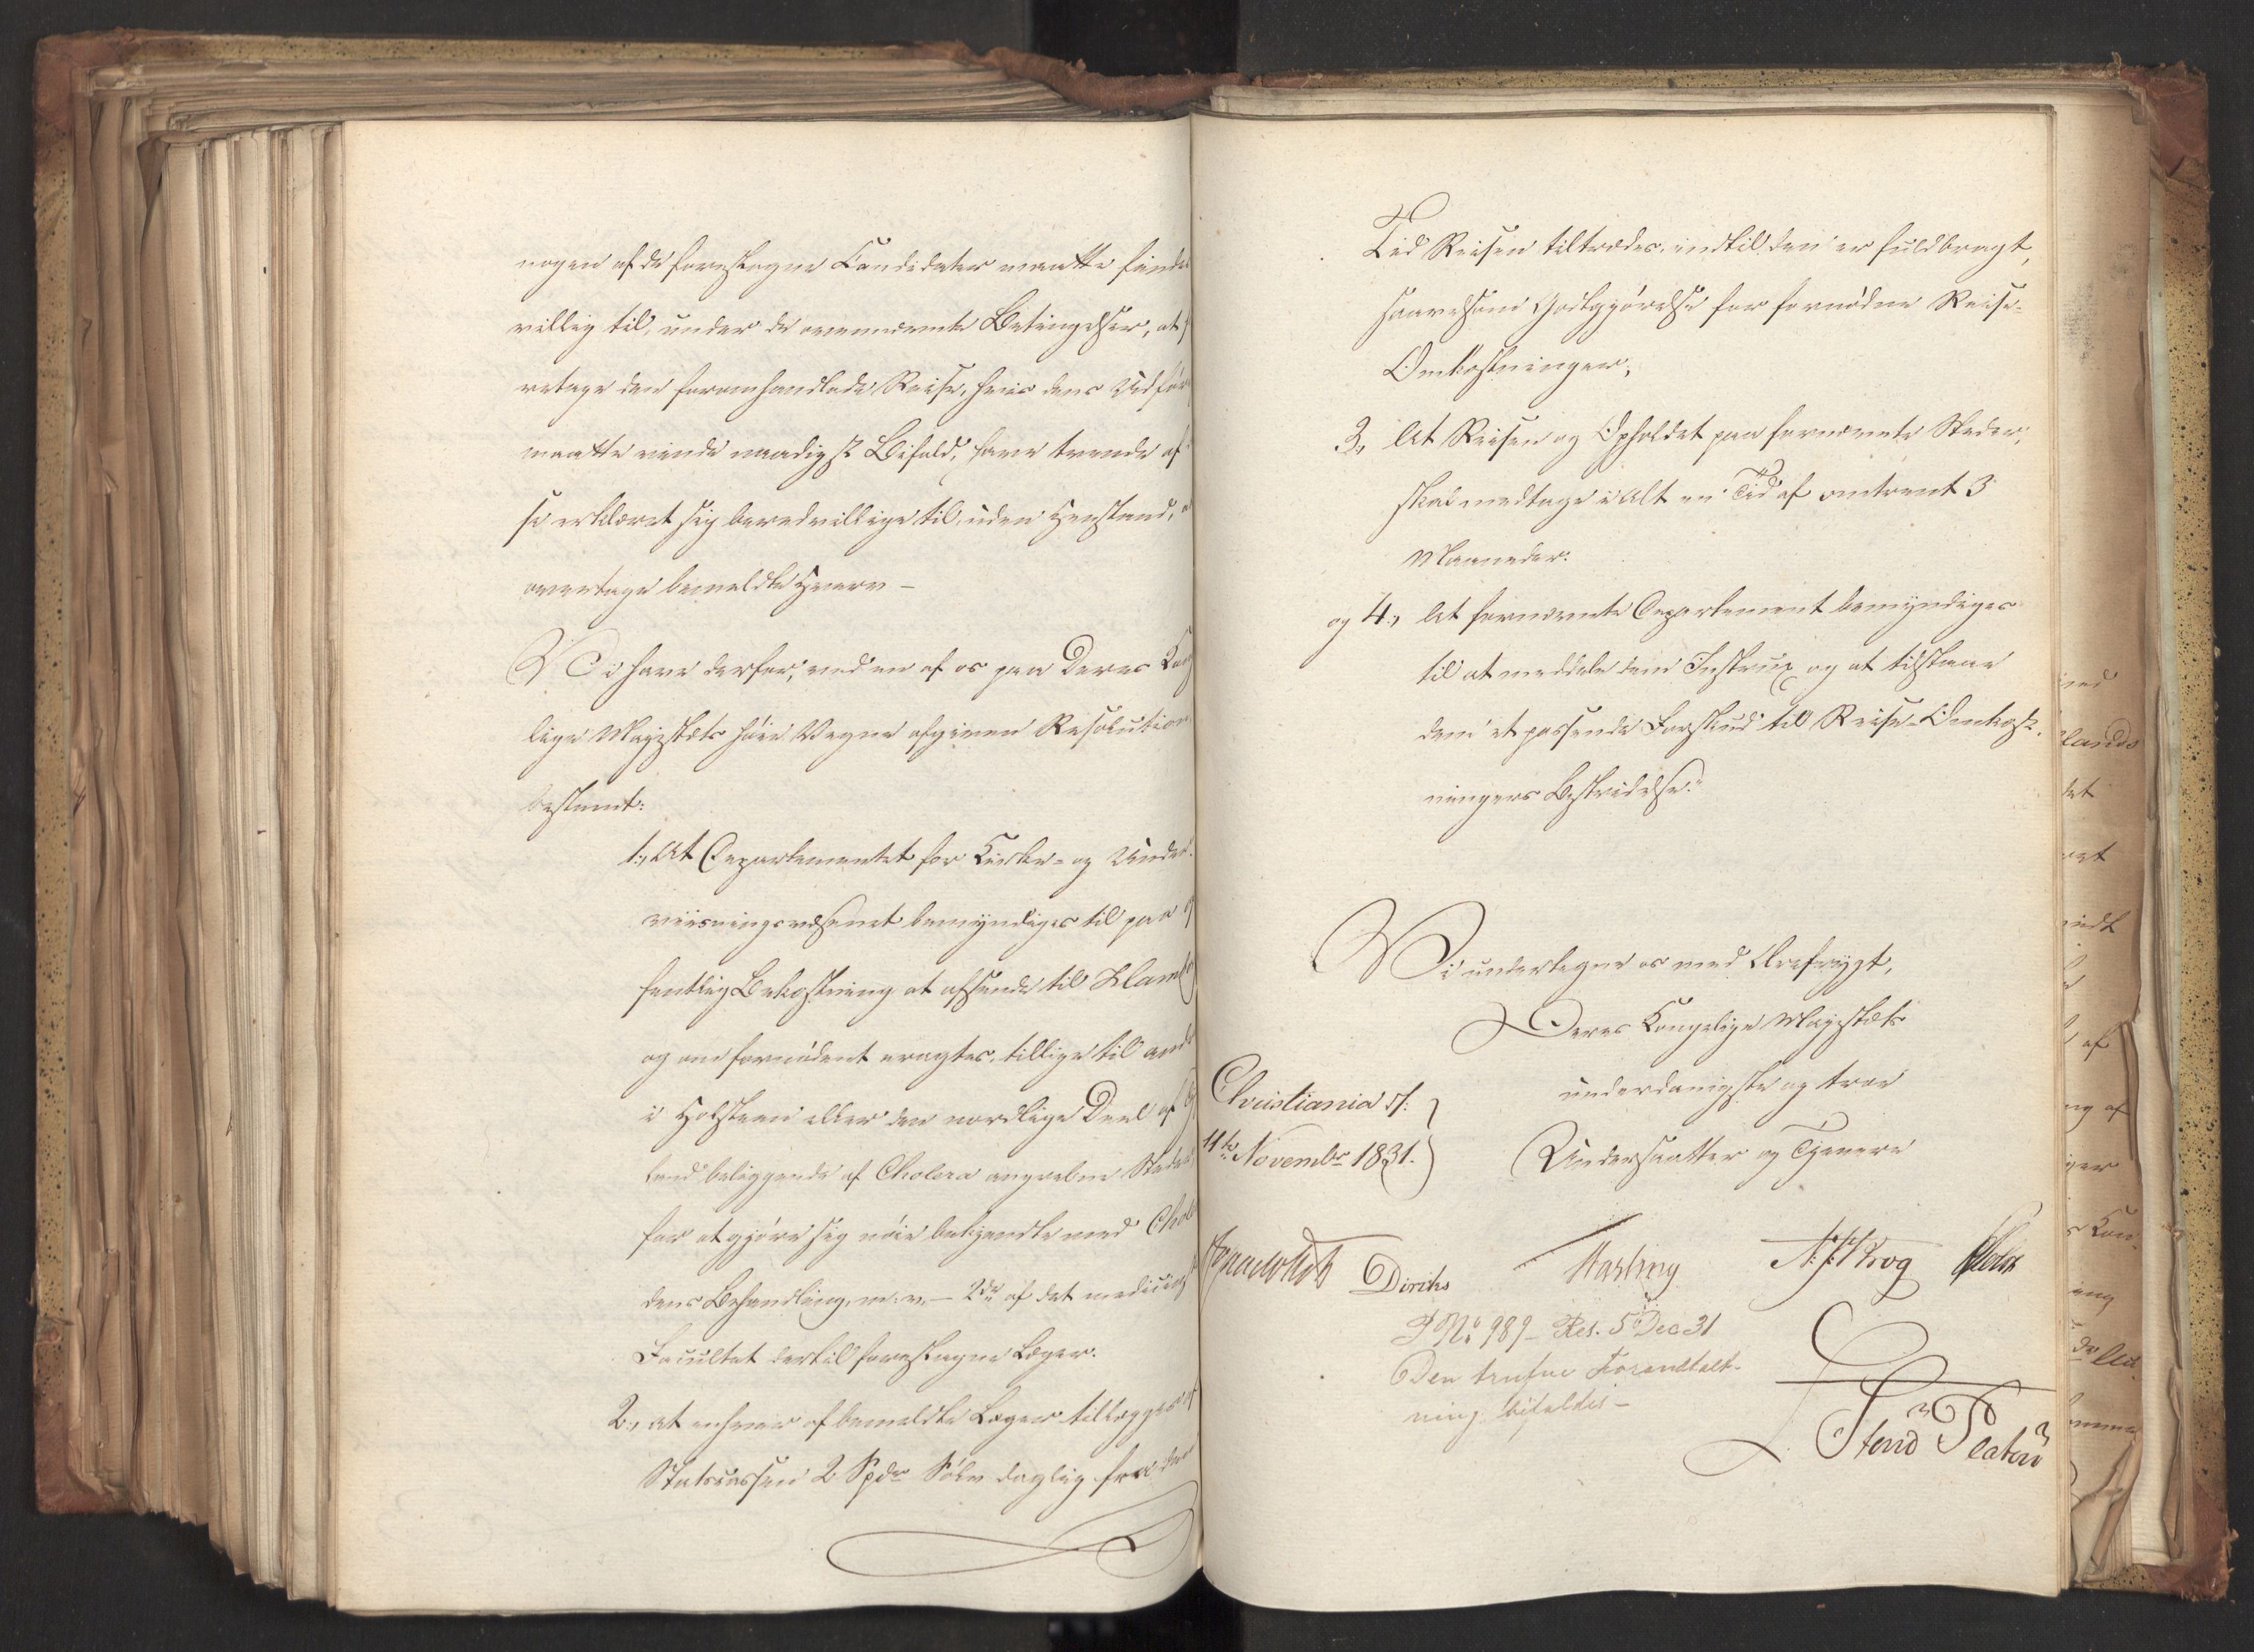 nogen af de foreslagne Candidater maatte finde
villig til, under de ovennævnte Betingelser, at
retage den foromhandlede Reise, hvis dens Udfør
maatte vinde naadigst Bifald, have trende af
se erklæret sig beredvillige til, uden Henstand,
overtage bemeldte Hverv –
Vi have derfor, ved en af os paa Deres Kong
lige Majestæts høie Vegne afgiven Resolution
bestemt:
1., At Departementet for Kirke- og Under-
viisningsvæsenet bemyndiges til paa of
fentlig Bekostning at afsende til Hamb
og om fornødent eragtes, tillige til andre
i Holsteen eller den nordlige Deel af
land beliggende af Cholera angrebne Steder
for at gjøre sig nøie bekjendte med Chol
dens Behandling, m: v. – 2de af det medicinske
Facultet dertil foreslagne Læger.
2., at enhver af bemeldte Læger tillægges af
Statscassen 2 Spdr Sølv daglig fra den
Tid Reisen tiltrædes, indtil den er fuldbragt,
saavelsom Godtgjørelse for fornødne Reise-
Omkostninger,
3, At Reisen og Opholdet paa fornævnte Steder,
skal medtage i Alt en Tid af omtrent 3
Maaneder.
og 4., At fornævnte Departement bemyndiges
til at meddele dem Instrux og at tilstaae
dem et passende Forskud til Reise-Omkost-
ningers Bestridelse."
Vi undertegne os med Ærefrygt,
Deres Kongelige Majestæts
underdanigste og troe
Undersaatter og Tjenere
Christiania d:
11te Novembr 1831.
Diriks
N. J. Krog
P No 989 – Res. 5 Dec 31
Den trufne Foranstalt-
ning bifaldes –